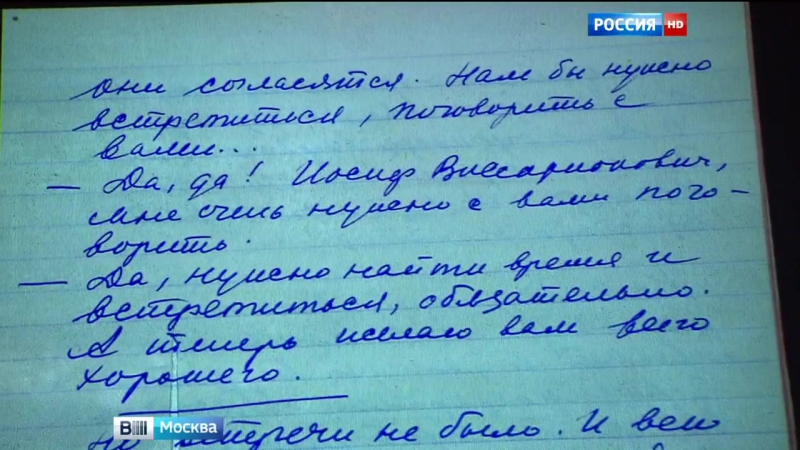 РОССИЯ HD
они согласятся. Нам бы нужно
встретиться, поговорить с
вами...
— Да, да! Иосиф Виссарионович,
мне очень нужно с вами пого-
ворить.
— Да, нужно найти время и
встретиться, обязательно.
А теперь желаю вам всего
хорошего.
Но встречи не было. И всю
В Москва